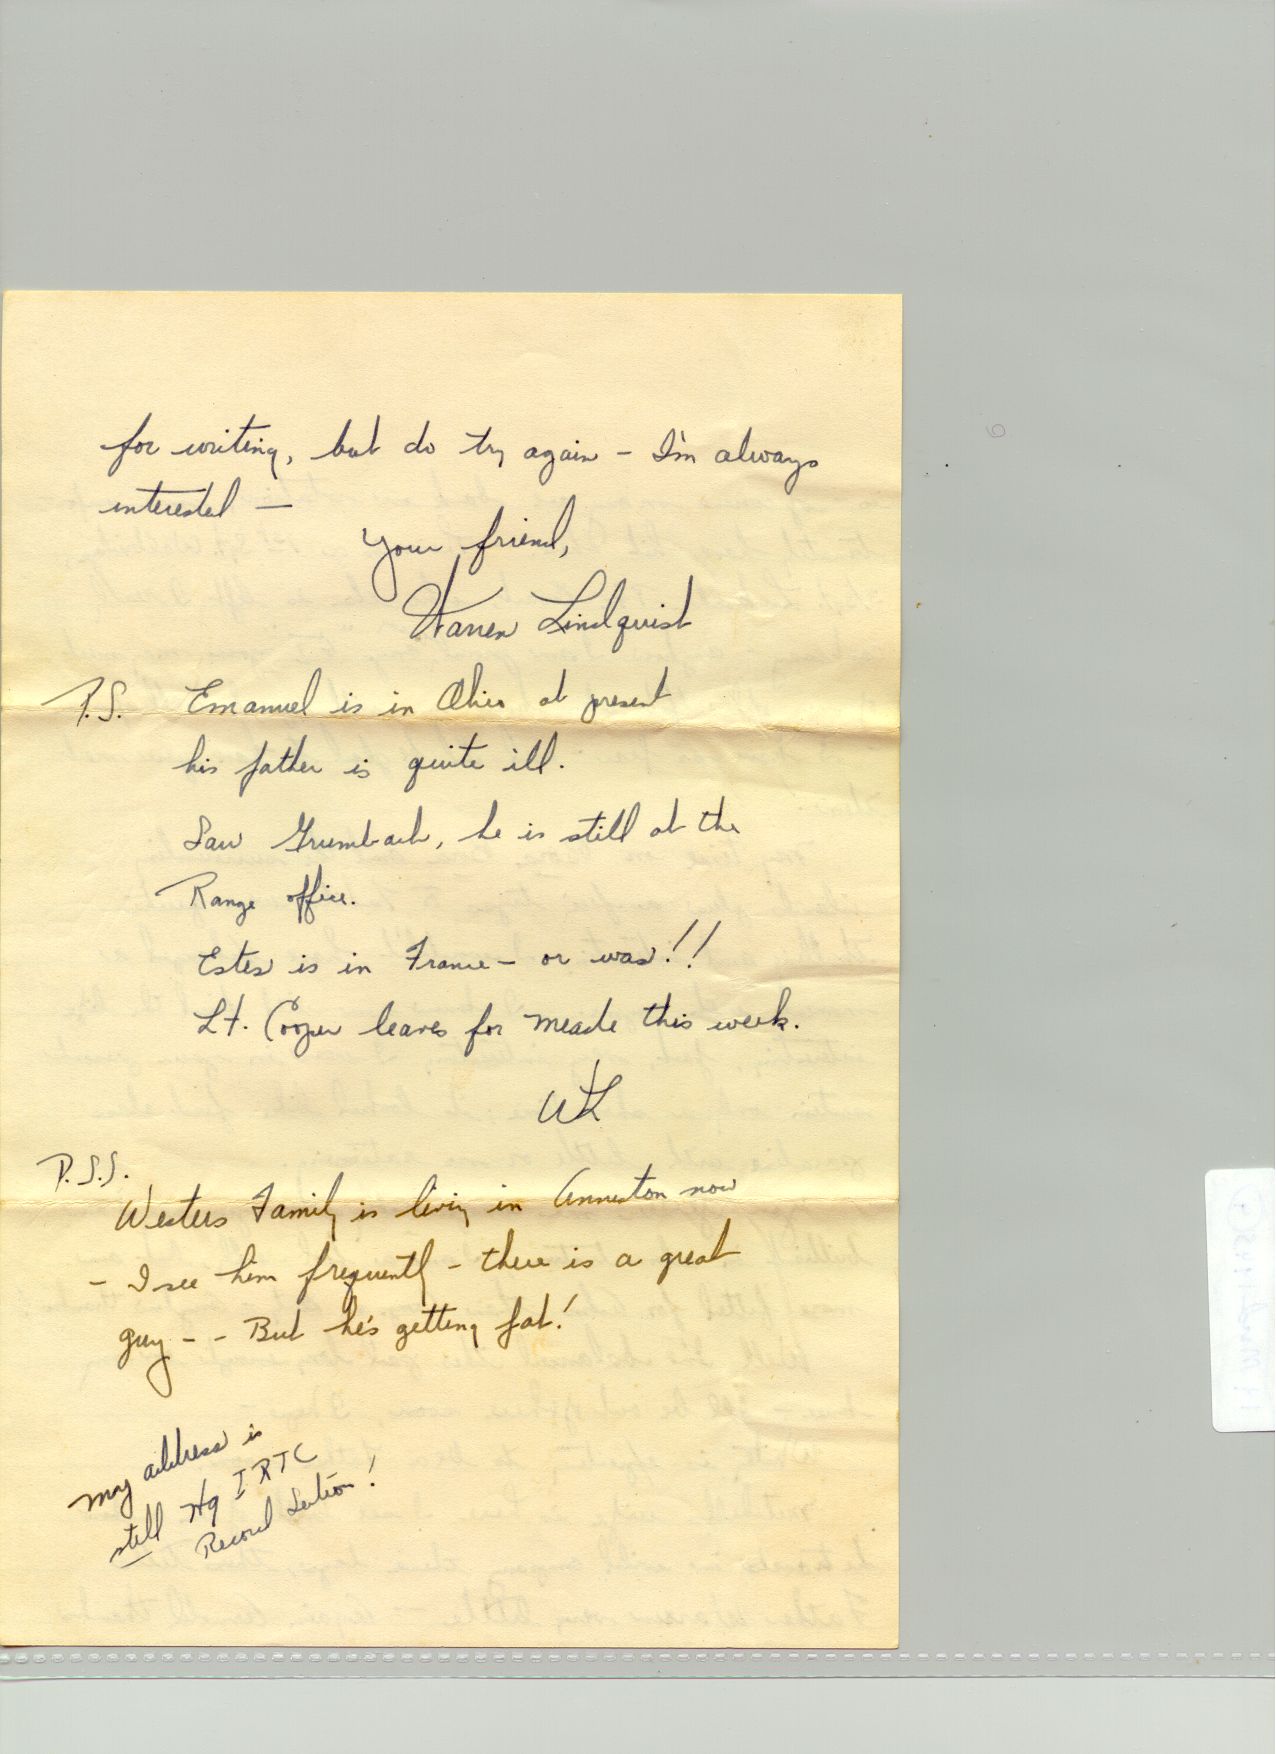 for writing, but do try again – I'm always
interested —
Your friend,
Warren Lindquist
P.S. Emanuel is in Ohio at present
his father is quite ill.
Saw Grumbach, he is still at the
Range office.
Estes is in France – or was!!
Lt. Cooper leaves for Meade this week.
WL
P.S.S.
Westers Family is living in Anniston now
– I see him frequently – there is a great
guy – – But he's getting fat!
My address is
still Hq IRTC
Record Section!